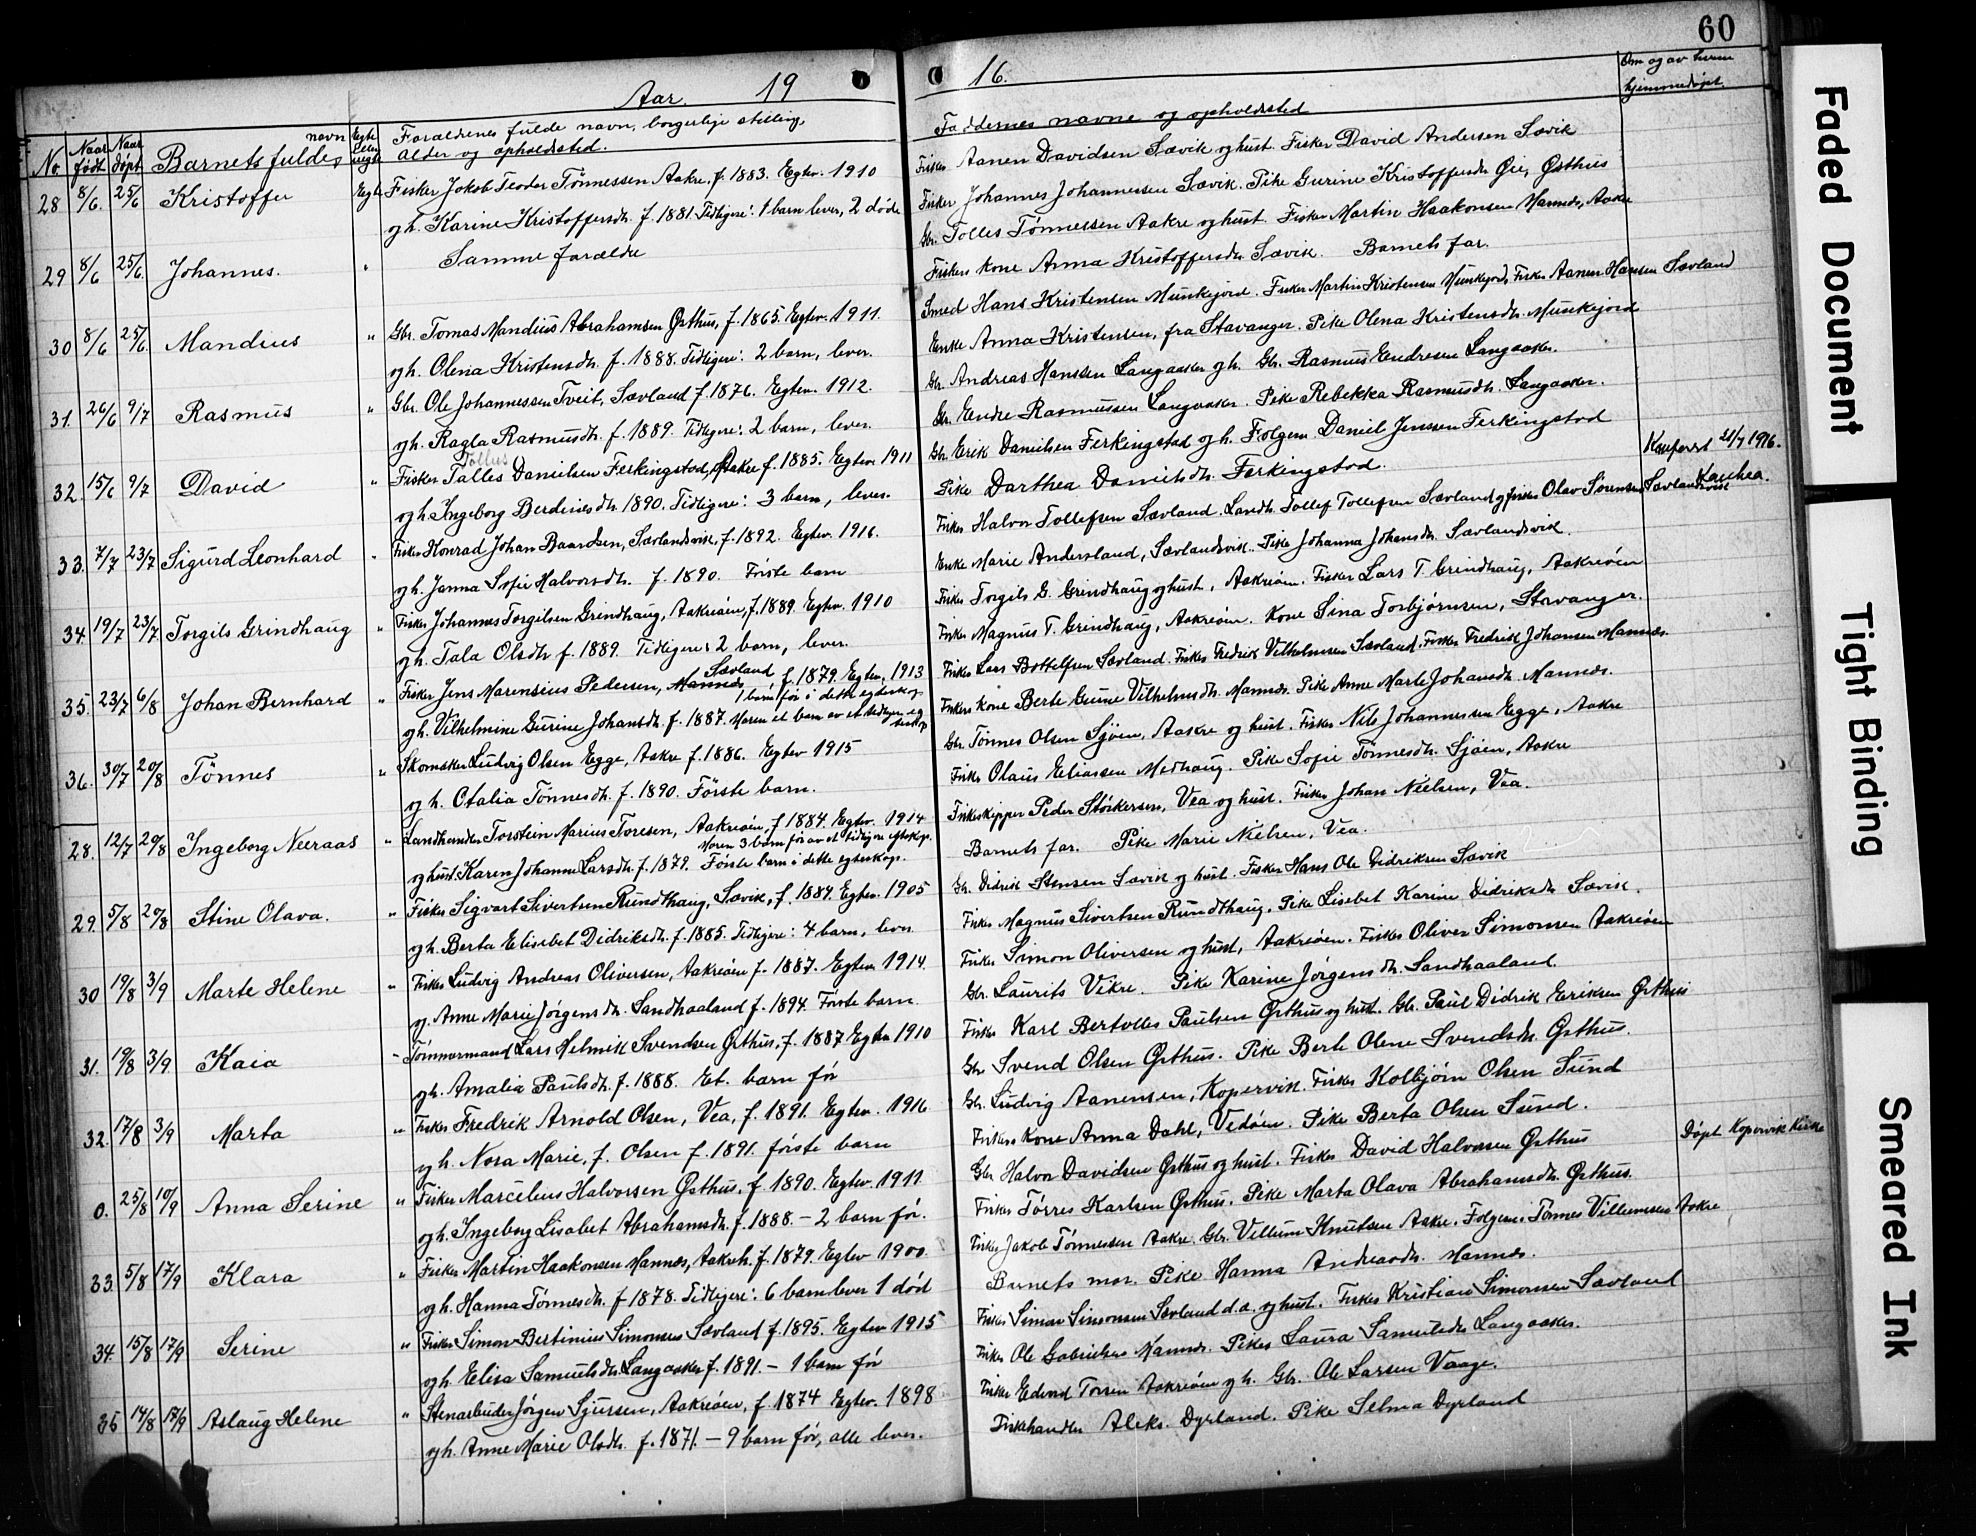 60
Aar. 19 16.
No Naar født Naar døpt Barnets fulde navn Egte eller uegte Forældrenes fulde navn, borgerlige stilling, alder og opholdssted. Faddernes navne og opholdssted Om og av hvem hjemmedøpt.
28 8/6. 25/6 Kristoffer Egte Fisker Jakob Teodor Tønnessen Aakre, f. 1883. Egtev. 1910
og h. Karine Kristoffersdtr. f. 1881. Tidligere: 1 barn lever, 2 døde
Fisker Aanen Davidsen Sævik og hust. Fisker David Andersen Sævik
Fisker Johannes Johannessen Sævik. Pike Gurine Kristoffersdtr. Øie, Østhus
29 8/6 25/6. Johannes. " Samme forældre
Gbr. Tolles Tønnessen Aakre og hust. Fisker Martin Haakonsen Mannes, Aakre
Fiskers kone Anna Kristoffersdtr. Sævik. Barnets far.
30 8/6 25/6. Mandius " Gbr. Tomas Mandius Abrahamsen Østhus, f. 1865. Egtev. 1911.
og h. Olena Kristensdtr. f. 1888. Tidligere: 2 barn, lever.
Smed Hans Kristensen Munkejord. Fisker Martin Kristensen Munkejord, Fisker Aanen Hansen Sævland
Enke Anna Kristensen, fra Stavanger. Pike Olena Kristensdtr. Munkejord
31. 26/6 9/7 Rasmus " Gbr. Ole Johannessen Tveit, Sævland f. 1876. Egtev. 1912.
og h. Ragla Rasmusdtr. f. 1889. Tidligere: 2 barn, lever.
Gbr. Andreas Hansen Langaaker og h. Gbr. Rasmus Endresen Langaaker.
Gbr. Endre Rasmussen Langaaker. Pike Rebekka Rasmusdtr. Langaaker.
32. 15/6 9/7 David " Fisker Talles Tollus Danielsen Ferkingstad, Aakre f. 1885. Egtev. 1911
og h. Ingeborg Berdinesdtr. 1890. Tidligere: 3 barn, lever.
Gbr. Erik Danielsen Ferkingstad og h. Folgem. Daniel Jenssen Ferkingstad
Pike Darthea Danielsdtr. Ferkingstad.
33. 7/7 23/7 Sigurd Leonhard " Fisker Konrad Johan Baardsen, Sævlandsvik, f. 1892. Egtev. 1916.
og h. Janna Sofie Halvorsdtr. f. 1890. Første barn
Fisker Halvor Tollefsen Sævland. Landh. Tollef Tollefsen Sævland og fisker Olav Sørensen Sævlandsvik
Enke Marie Andersland, Sævlandsvik. Pike Johanna Johansdtr. Sævlandsvik.
21/7 1916.
34. 19/7 23/7. Torgils Grindhaug " Fisker Johannes Torgilsen Grindhaug, Aakreøen, f. 1889. Egtev. 1910
og h. Tala Olsdtr f. 1889. Tidligere: 2 barn, lever.
Fisker Torgils G. Grindhaug og hust., Aakreøen. Fisker Lars T. Grindhaug, Aakreøen
Fisker Magnus T. Grindhaug, Aakreøen. Kone Sina Torbjørnsen, Stavanger.
35. 23/7 6/8 Johan Bernhard " Fisker Jens Marensius Pedersen, Mannes Sævland f. 1879. Egtev. 1913
1 barn før i dette egteskap
og h. Vilhelmine Gurine Johansdtr. f. 1887. Moren et barn av et tidligere egteskap
Fisker Lars Bottelfsen Sævland. Fisker Fredrik Vilhelmsen Sævland. Fisker Fredrik Johansen Mannes.
Fiskers kone Berte Gurine Vilhelmsdtr. Mannes. Pike Anne Marte Johansdtr. Mannes.
36. 30/7 20/8 Tønnes " Skomaker Ludvig Olsen Egge, Aakre f. 1886. Egtev 1915
og h. Otalia Tønnesdtr. f. 1890. Første barn.
Gbr. Tønnes Olsen Sjøen, Aakre og hust. Fisker Nils Johannessen Egge, Aakre
Fisker Olaus Eliassen Medhaug. Pike Sofie Tønnesdtr. Sjøen, Aakre
28. 12/7 20/8 Ingeborg Neeraas " Landhandler Torstein Marius Toresen, Aakreøen, f. 1884. Egtev. 1914
Moren 3 barn før av et tidligere egteskap.
og hust. Karen Johanne Larsdtr. f. 1879. Første barn i dette egteskap.
Fiskeskipper Peder Størkersen, Vea og hust. Fisker Johan Nielsen, Vea.
Barnets far. Pike Marie Nielsen, Vea.
29. 5/8 20/8 Stine Olava. " Fisker Sigvart Sivertsen Rundthaug, Sævik, f. 1884. Egtev. 1905
og h. Berta Elisebet Didriksdtr. f. 1885. Tidligere: 4 barn, lever
Gbr. Didrik Stensen Sævik og hust. Fisker Hans Ole Didriksen Sævik
Fisker Magnus Sivertsen Rundthaug. Pike Lisebet Karine Didriksdtr Sævik.
30 19/8 3/9 Marte Helene " Fisker Ludvig Andreas Oliversen, Aakreøen f. 1887. Egtev. 1914.
og Anne Marie Jørgensdtr. Sandhaaland f. 1894. Første barn.
Fisker Simon Oliversen og hust, Aakreøen. Fisker Oliver Simonsen Aakreøen
Gbr. Laurits Vikre. Pike Karine Jørgensdtr. Sandhaaland.
31. 19/8 3/9 Kaia - Tømmermand Lars Helmik Svendsen Østhus, f. 1887 Egtev 1910
og h. Amalia Paulsdtr. f. 1888. Et. barn før
Fisker Karl Bertolles Paulsen Østhus og hust. Gbr. Paul Didrik Eriksen Østhus
Gbr Svend Olsen Østhus. Pike Berte Olene Svendsdtr. Østhus.
32. 17/8 3/9 Marta " Fisker Fredrik Arnold Olsen, Vea, f. 1891. Egtev. 1916
og h. Nora Marie, f. Olsen f. 1891. første barn
Gbr. Ludvig Aanensen, Kopervik. Fisker Kolbjørn Olsen Sund
Fiskers Kone Anna Dahl, Vedøen. Pike Berta Olsen Sund.
Døpt Kopervik Kirke
0. 25/8 10/9 Anna Serine " Fisker Marcelius Halvorsen Østhus, f. 1890. Egtev. 1911.
og h. Ingeborg Lisabet Abrahamsdtr. f. 1888. - 2 barn før.
Gbr Halvor Davidsen Østhus og hust. Fisker David Halvorsen Østhus
Fisker Tørres Karlsen Østhus. Pike Marta Olava Abrahamsdtr. Østhus.
33. 5/8 17/9 Klara " Fisker Martin Haakonsen Mannes, Aakreh. f. 1879. Egtev 1900.
og h. Hanna Tønnesdtr. f 1878. Tidligere: 6 barn lever 1 død
Fisker Jakob Tønnessen Aakre. Gbr. Villum Knutsen Aakre. Folgem. Tønnes Villumsen Aakre
Barnets mor. Pike Hanna Andreasdtr. Mannes.
34. 15/8 17/9 Serine " Fisker Simon Bertinius Simonsen Sævland f. 1895. Egtev 1915
og h. Elisa Samuelsdtr. Langaaker f. 1891. - 1 barn før
Fisker Simon Simonsen Sævland d.æ. og hust. Fisker Kristian Simonsen Sævland
Fisker Ole Gabrielsen Mannes. Pike Laura Samuelsdtr Langaaker.
35 14/8 17/9 Aslaug Helene " Stenarbeider Jørgen Sjursen, Aakreøen, f. 1874 Egtev. 1898
og h. Anne Marie Olsdtr. f. 1871. - 9 barn før, alle lever.
Fisker Edvard Torsen Aakreøen og h. Gbr. Ole Larsen Vaage.
Fiskehandler Aleks. Dyrland. Pike Selma Dyrland
Faded Document
Tight Binding
Smeared Ink